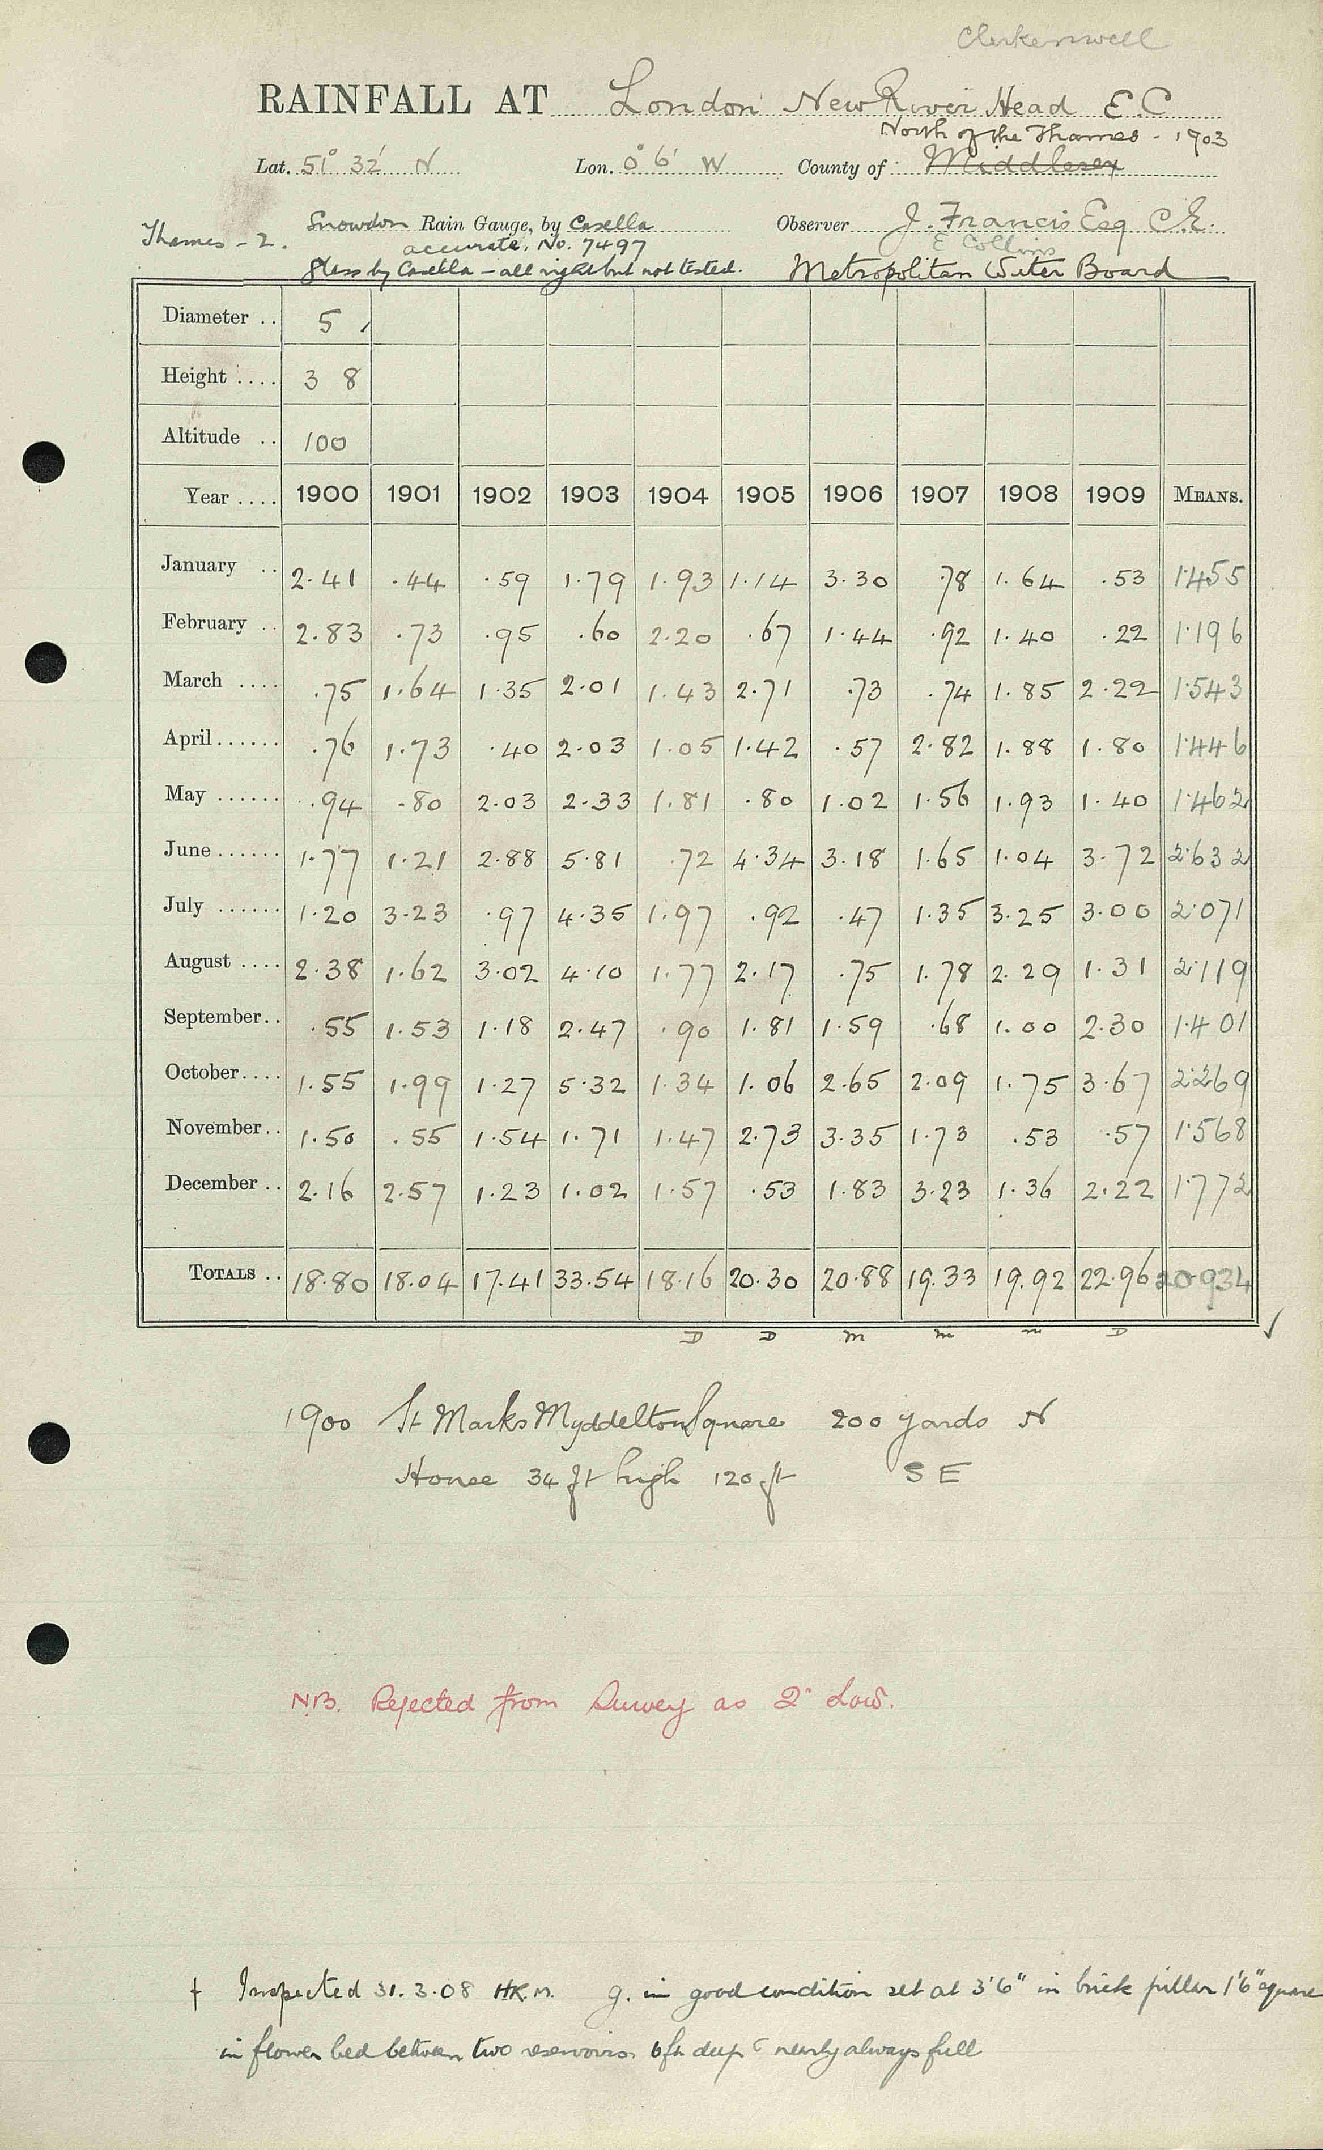 Clerkenwell
RAINFALL AT London New River Head E.C
North of the Thames - 1903
Lat. 51° 32' N Lon. 0° 6' W County of Middlesex
Thames - 2. Snowdon Rain Gauge, by Casella Observer J. Francis Esq C.E.
accurate. No. 7497 E Collins
Glass by Casella - all right but not tested. Metropolitan Water Board
Diameter .. 5
Height .... 3 8
Altitude .. 100
Year .... 1900 1901 1902 1903 1904 1905 1906 1907 1908 1909 MEANS.
January .. 2.41 .44 .59 1.79 1.93 1.14 3.30 .78 1.64 .53 1.455
February .. 2.83 .73 .95 .60 2.20 .67 1.44 .92 1.40 .22 1.196
March .... .75 1.64 1.35 2.01 1.43 2.71 .73 .74 1.85 2.22 1.543
April ...... .76 1.73 .40 2.03 1.05 1.42 .57 2.82 1.88 1.80 1.446
May ...... .94 .80 2.03 2.33 1.81 .80 1.02 1.56 1.93 1.40 1.462
June ...... 1.77 1.21 2.88 5.81 .72 4.34 3.18 1.65 1.04 3.72 2.632
July ...... 1.20 3.23 .97 4.35 1.97 .92 .47 1.35 3.25 3.00 2.071
August .... 2.38 1.62 3.02 4.10 1.77 2.17 .75 1.78 2.29 1.31 2.119
September.. .55 1.53 1.18 2.47 .90 1.81 1.59 .68 1.00 2.30 1.401
October.... 1.55 1.99 1.27 5.32 1.34 1.06 2.65 2.09 1.75 3.67 2.269
November.. 1.50 .55 1.54 1.71 1.47 2.73 3.35 1.73 .53 .57 1.568
December .. 2.16 2.57 1.23 1.02 1.57 .53 1.83 3.23 1.36 2.22 1.772
TOTALS .. 18.80 18.04 17.41 33.54 18.16 20.30 20.88 19.33 19.92 22.96 20.934
D D m m m D
1900 St Marks Myddelton Square 200 yards N
House 34 ft high 120 ft SE
N.B. Rejected from Survey as 2" Low.
† Inspected 31.3.08 HR.M. g. in good condition set at 3'6" in brick pillar 1'6" square
in flower bed between two reservoirs 6ft deep nearly always full